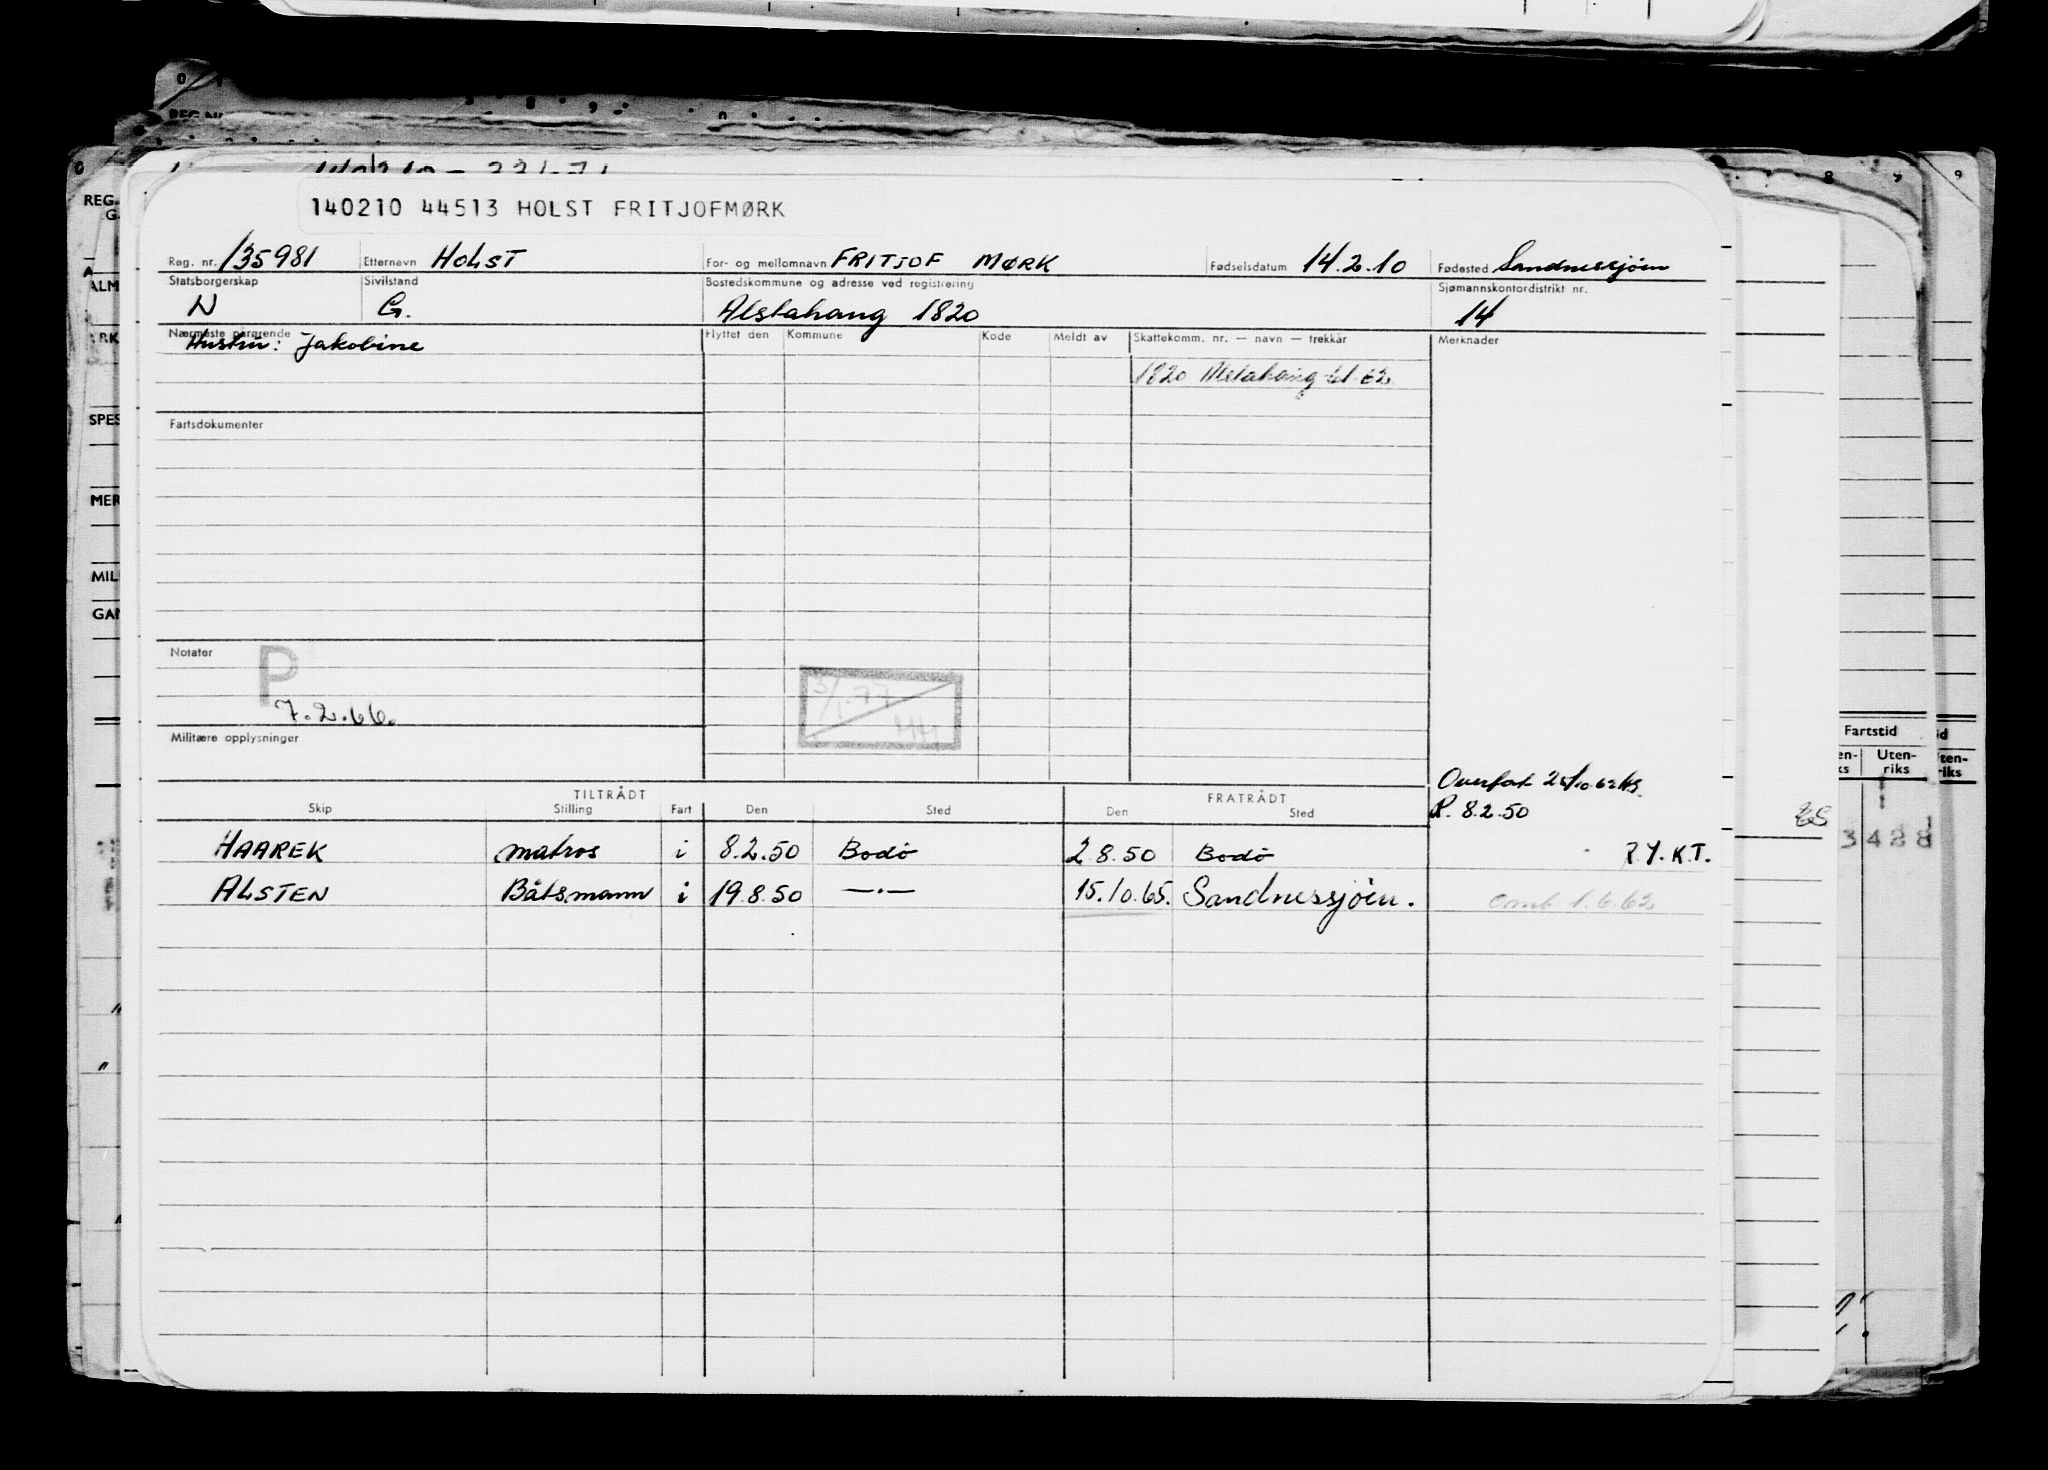 140210 44513 HOLST FRITJOFMØRK
Reg. nr. 135981 Etternavn HOLST For- og mellomnavn FRITJOF MØRK Fødselsdatum 14.2.10 Fødested Sandnessjøen
Statsborgerskap Sivilstand Bostedskommune og adresse ved registrering Sjømannskontordistrikt nr.
N G. Alstahaug 1820 14
Nærmeste pårørende Flyttet den Kommune Kode Meldt av Skattekomm. nr. — navn — trekkår Merknader
Hustru: Jakobine
1820 Alstahaug 61-62
Fartsdokumenter
Notater
P
7.2.66.
3/1.77
Militære opplysninger
Overført 25/10.62
TILTRÅDT FRATRÅDT
Skip Stilling Fart Den Sted Den Sted
R. 8.2.50
HAAREK matros i 8.2.50 Bodø 2.8.50 Bodø R.Y.K.T.
ALSTEN Båtsmann i 19.8.50 —·— 15.10.65. Sandnessjøen. Omb 1.6.62
REG.
G.
ALM
RK
SPES
MER
MIL
GAN
8 9 9
Fartstid
Uten-
riks
3428